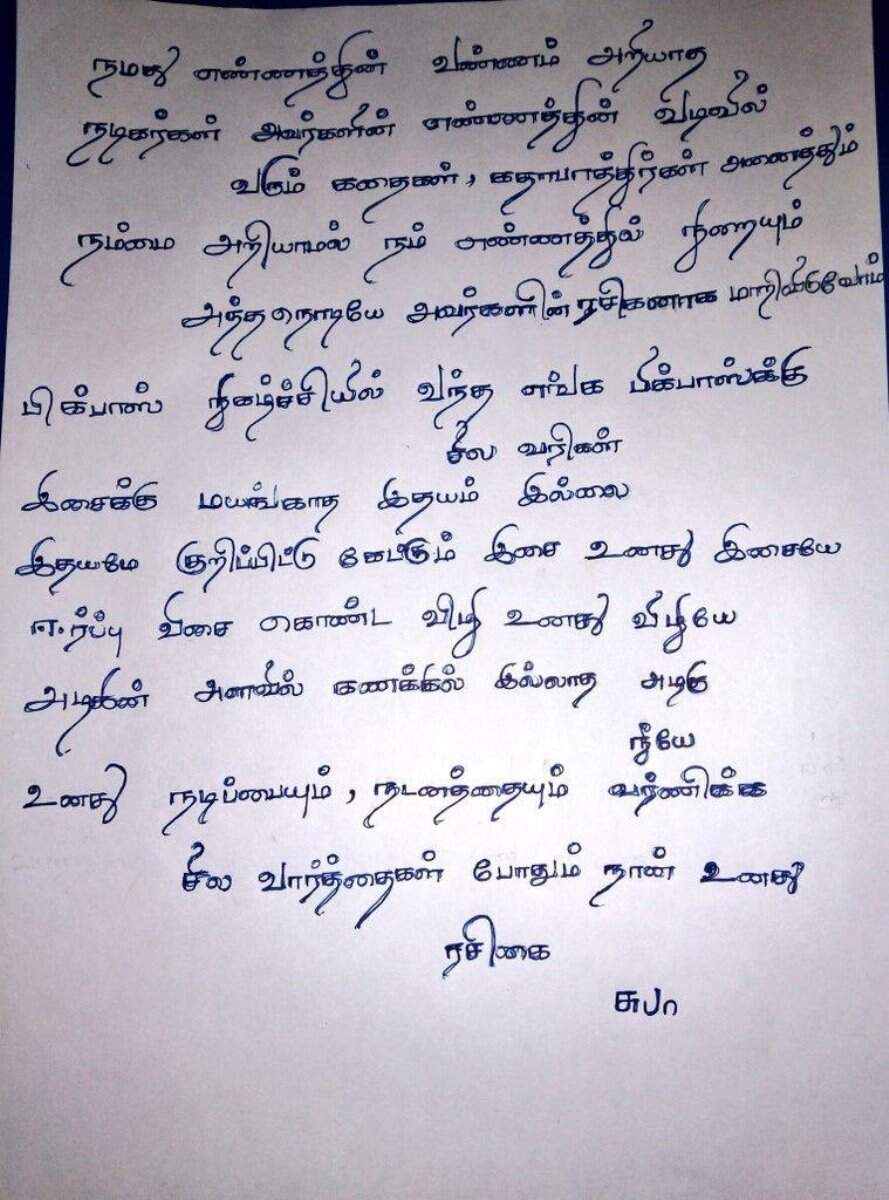 நமது எண்ணத்தின் வண்ணம் அறியாத
நடிகர்கள் அவர்களின் எண்ணத்தின் வடிவில்
வரும் கதைகள், கதாபாத்திர்கள் அனைத்தும்
நம்மை அறியாமல் நம் எண்ணத்தில் நிறையும்
அந்த நொடியே அவர்களின் ரசிகனாக மாறிவிடுவோம்
பிக்பாஸ் நிகழ்ச்சியில் வந்த எங்க பிக்பாஸ்க்கு
சில வரிகள்
இசைக்கு மயங்காத இதயம் இல்லை
இதயமே குறிப்பிட்டு கேட்கும் இசை உனது இசையே
ஈர்ப்பு விசை கொண்ட விழி உனது விழியே
அழகின் அளவில் கணக்கில் இல்லாத அழகு
நீயே
உனது நடிப்பையும், நடனத்தையும் வர்ணிக்க
சில வார்த்தைகள் போதும் நான் உனது
ரசிகை
சுபா